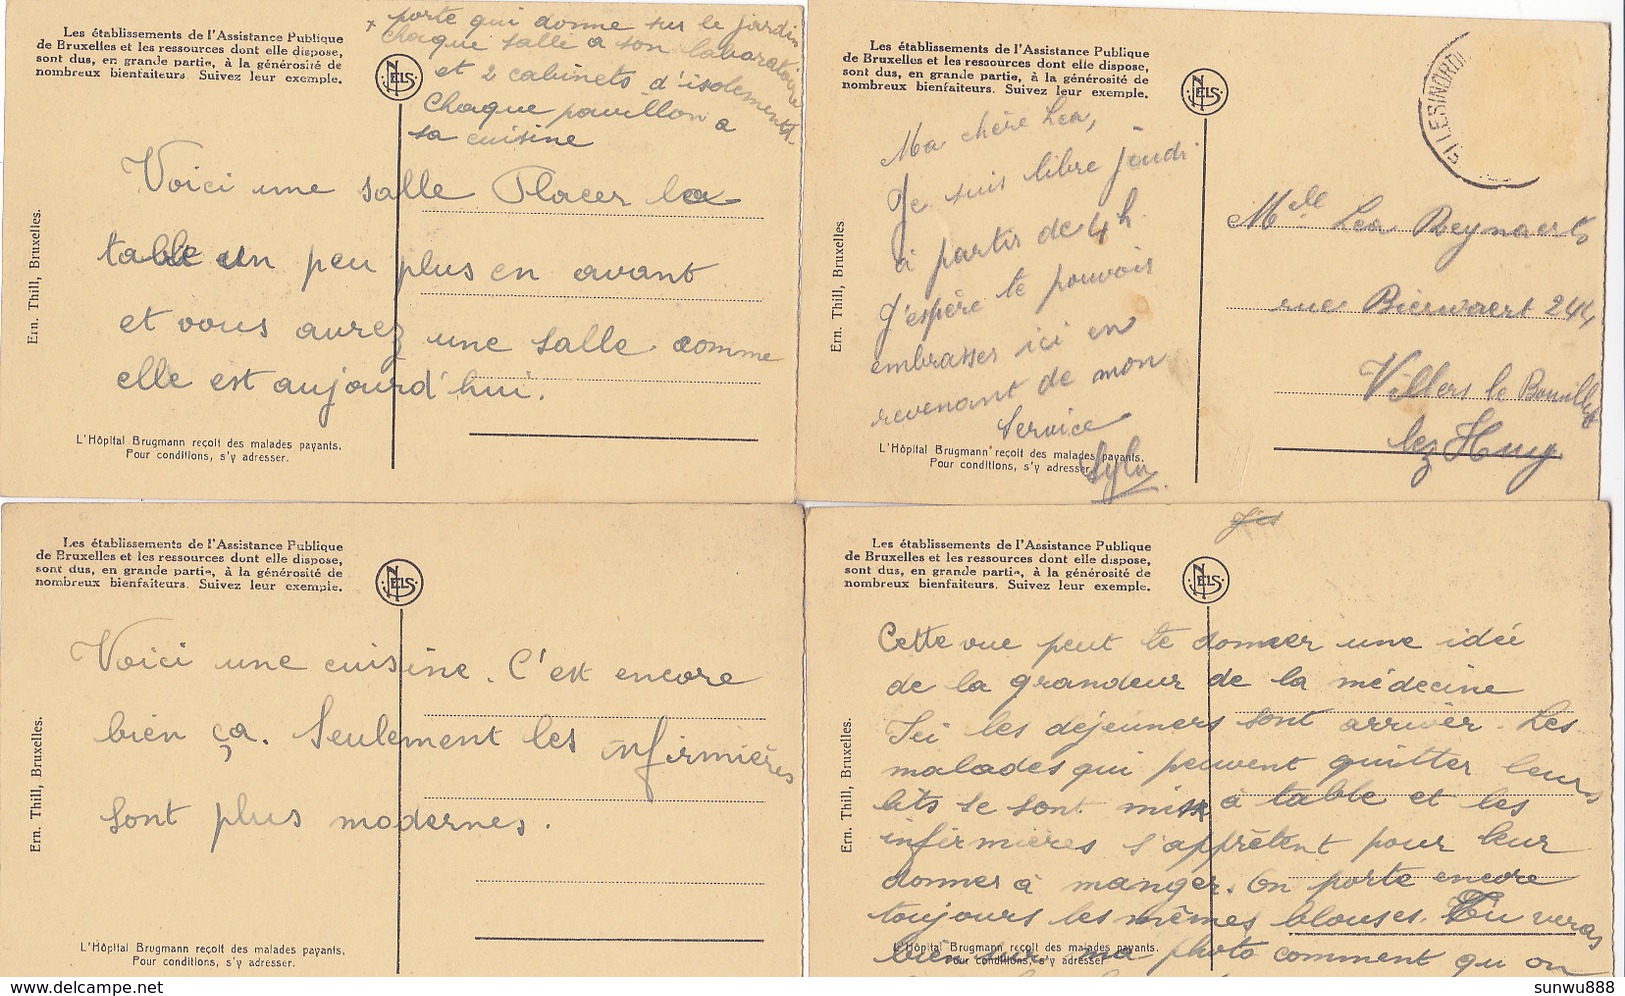 Les établissements de l'Assistance Publique
de Bruxelles et les ressources dont elle dispose,
sont dus, en grande partie, à la générosité de
nombreux bienfaiteurs. Suivez leur exemple.
NELS
x porte qui donne sur le jardin
Chaque salle a son laboratoire
et 2 cabinets d'isolement
Chaque pavillon a
sa cuisine
Voici une salle Placer la
table un peu plus en avant
et vous aurez une salle comme
elle est aujourd'hui.
Ern. Thill, Bruxelles.
L'Hôpital Brugmann reçoit des malades payants.
Pour conditions, s'y adresser.
Les établissements de l'Assistance Publique
de Bruxelles et les ressources dont elle dispose,
sont dus, en grande partie, à la générosité de
nombreux bienfaiteurs. Suivez leur exemple.
NELS
Ma chère Lea,
Je suis libre jeudi
à partir de 4 h
J'espère te pouvoir
embrasser ici en
revenant de mon
Service
Ern. Thill, Bruxelles
L'Hôpital Brugmann reçoit des malades payants.
Pour conditions, s'y adresser.
Melle Lea Reynaerts
rue Bierwaert 244
Villers le Bouillet
lez Huy
Les établissements de l'Assistance Publique
de Bruxelles et les ressources dont elle dispose,
sont dus, en grande partie, à la générosité de
nombreux bienfaiteurs. Suivez leur exemple.
NELS
Voici une cuisine. C'est encore
bien ça. Seulement les infirmières
sont plus modernes.
Ern. Thill, Bruxelles.
L'Hôpital Brugmann reçoit des malades payants.
Pour conditions, s'y adresser.
Les établissements de l'Assistance Publique
de Bruxelles et les ressources dont elle dispose,
sont dus, en grande partie, à la générosité de
nombreux bienfaiteurs. Suivez leur exemple.
NELS
Cette vue peut te donner une idée
de la grandeur de la médecine
Ici les déjeuners sont arriver. Les
malades qui peuvent quitter leurs
lits se sont mis à table et les
infirmières s'apprêtent pour leur
donner à manger. On porte encore
toujours les mêmes blouses. Tu veras
bien sur ma photo comment qu on
Ern. Thill, Bruxelles.
L'Hôpital Brugmann reçoit des malades payants.
Pour conditions, s'y adresser.
www.delcampe.net
sunwu888